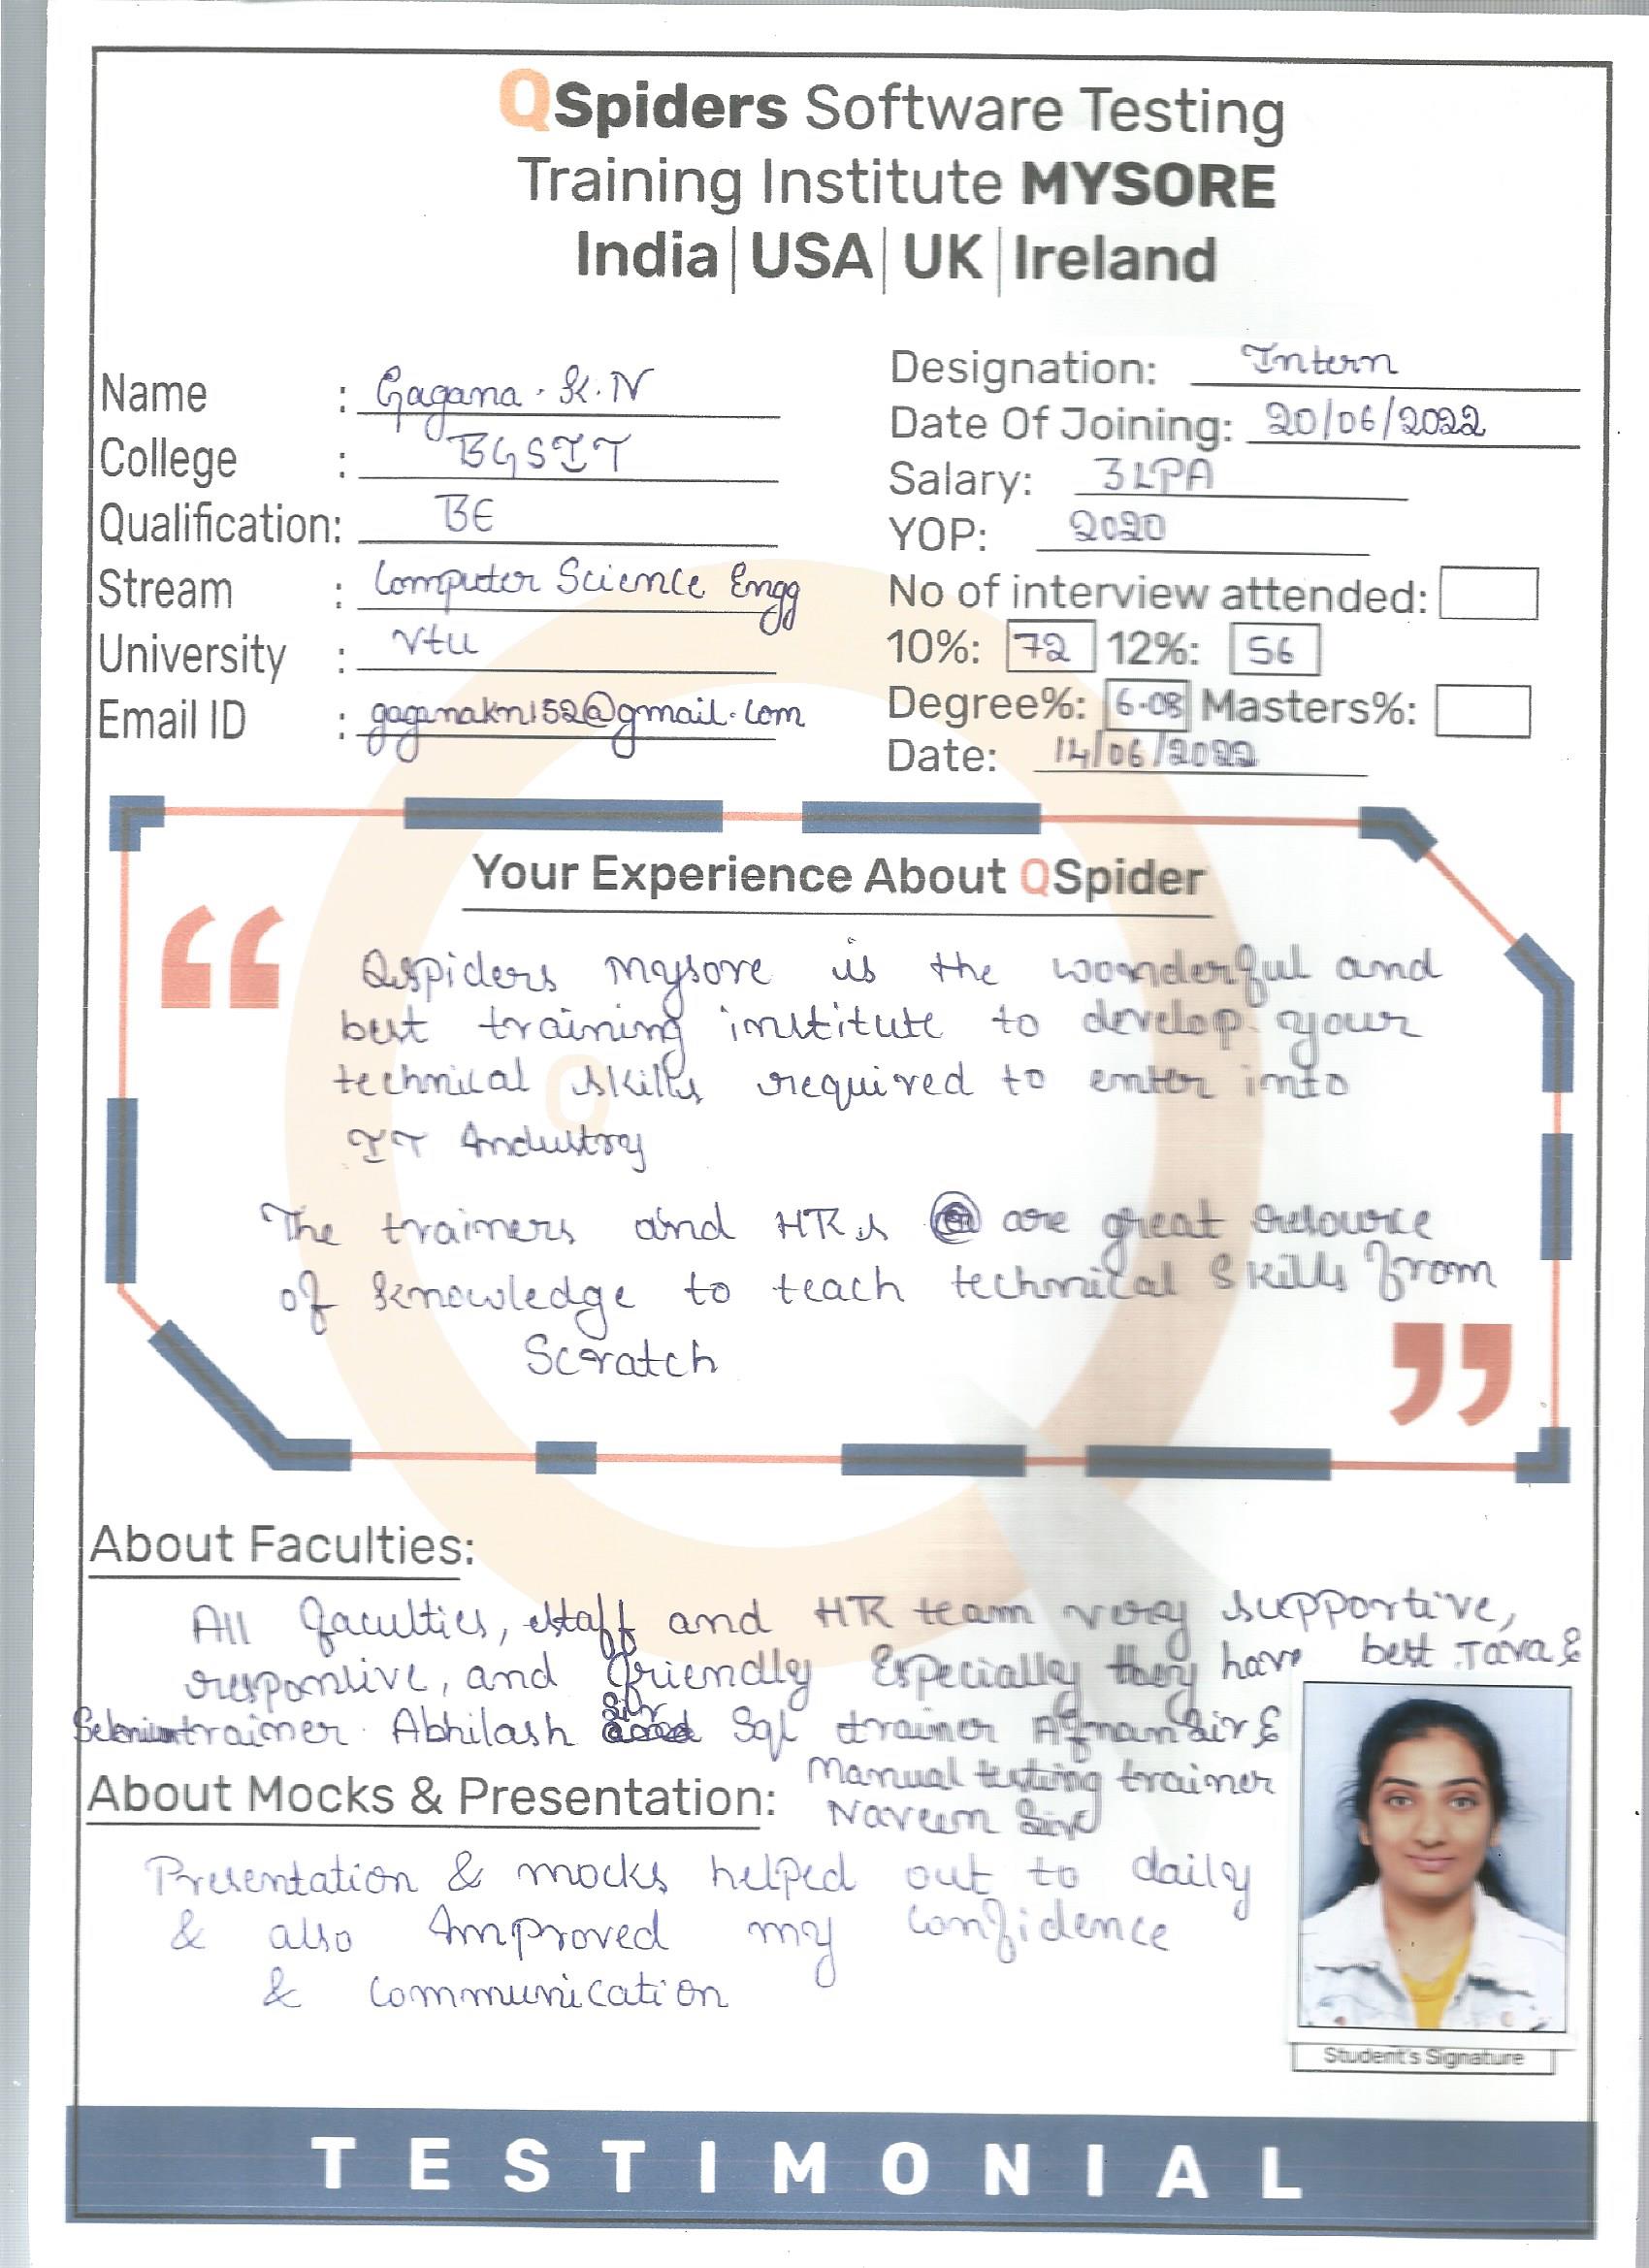 QSpiders Software Testing
Training Institute MYSORE
India | USA | UK | Ireland
Name : Gagana . K . N
College : BGSIT
Qualification: BE
Stream : Computer Science Engg
University : Vtu
Email ID : gaganakn152@gmail.com
Designation: Intern
Date Of Joining: 20/06/2022
Salary: 3LPA
YOP: 2020
No of interview attended:
10%: 72 12%: 56
Degree%: 6.08 Masters%:
Date: 14/06/2022
Your Experience About QSpider
“
Qspiders Mysore is the wonderful and
best training institute to develop your
technical skills required to enter into
IT Industry
The trainers and HRs are great resource
of knowledge to teach technical Skills from
Scratch
”
About Faculties:
All faculties, staff and HR team very supportive,
responsive, and friendly Especially they have best Java &
Selenium trainer Abhilash Sir Sql trainer Afnan Sir &
Manual testing trainer
Naveen Sir
About Mocks & Presentation:
Presentation & mocks helped out to daily
& also Improved my confidence
& communication
Student's Signature
TESTIMONIAL